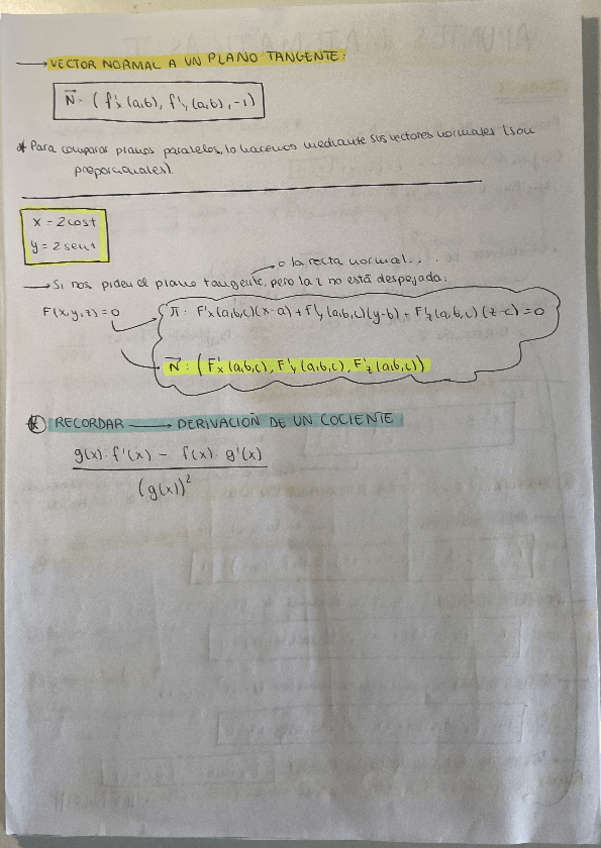 → VECTOR NORMAL A UN PLANO TANGENTE:
N = (f'x (a,b), f'y (a,b), -1)
* Para comparar planos paralelos, lo hacemos mediante sus vectores normales (son
proporcionales).
x = 2cost
y = 2sent
o la recta normal...
→ Si nos piden el plano tangente, pero la z no está despejada:
F(x,y,z) = 0
π: F'x (a,b,c)(x-a) + f'y (a,b,c)(y-b) + F'z (a,b,c) (z-c) = 0
N: (F'x (a,b,c), F'y (a,b,c), F'z (a,b,c))
* RECORDAR → DERIVACIÓN DE UN COCIENTE
g(x) · f'(x) - f(x) · g'(x)
(g(x))²